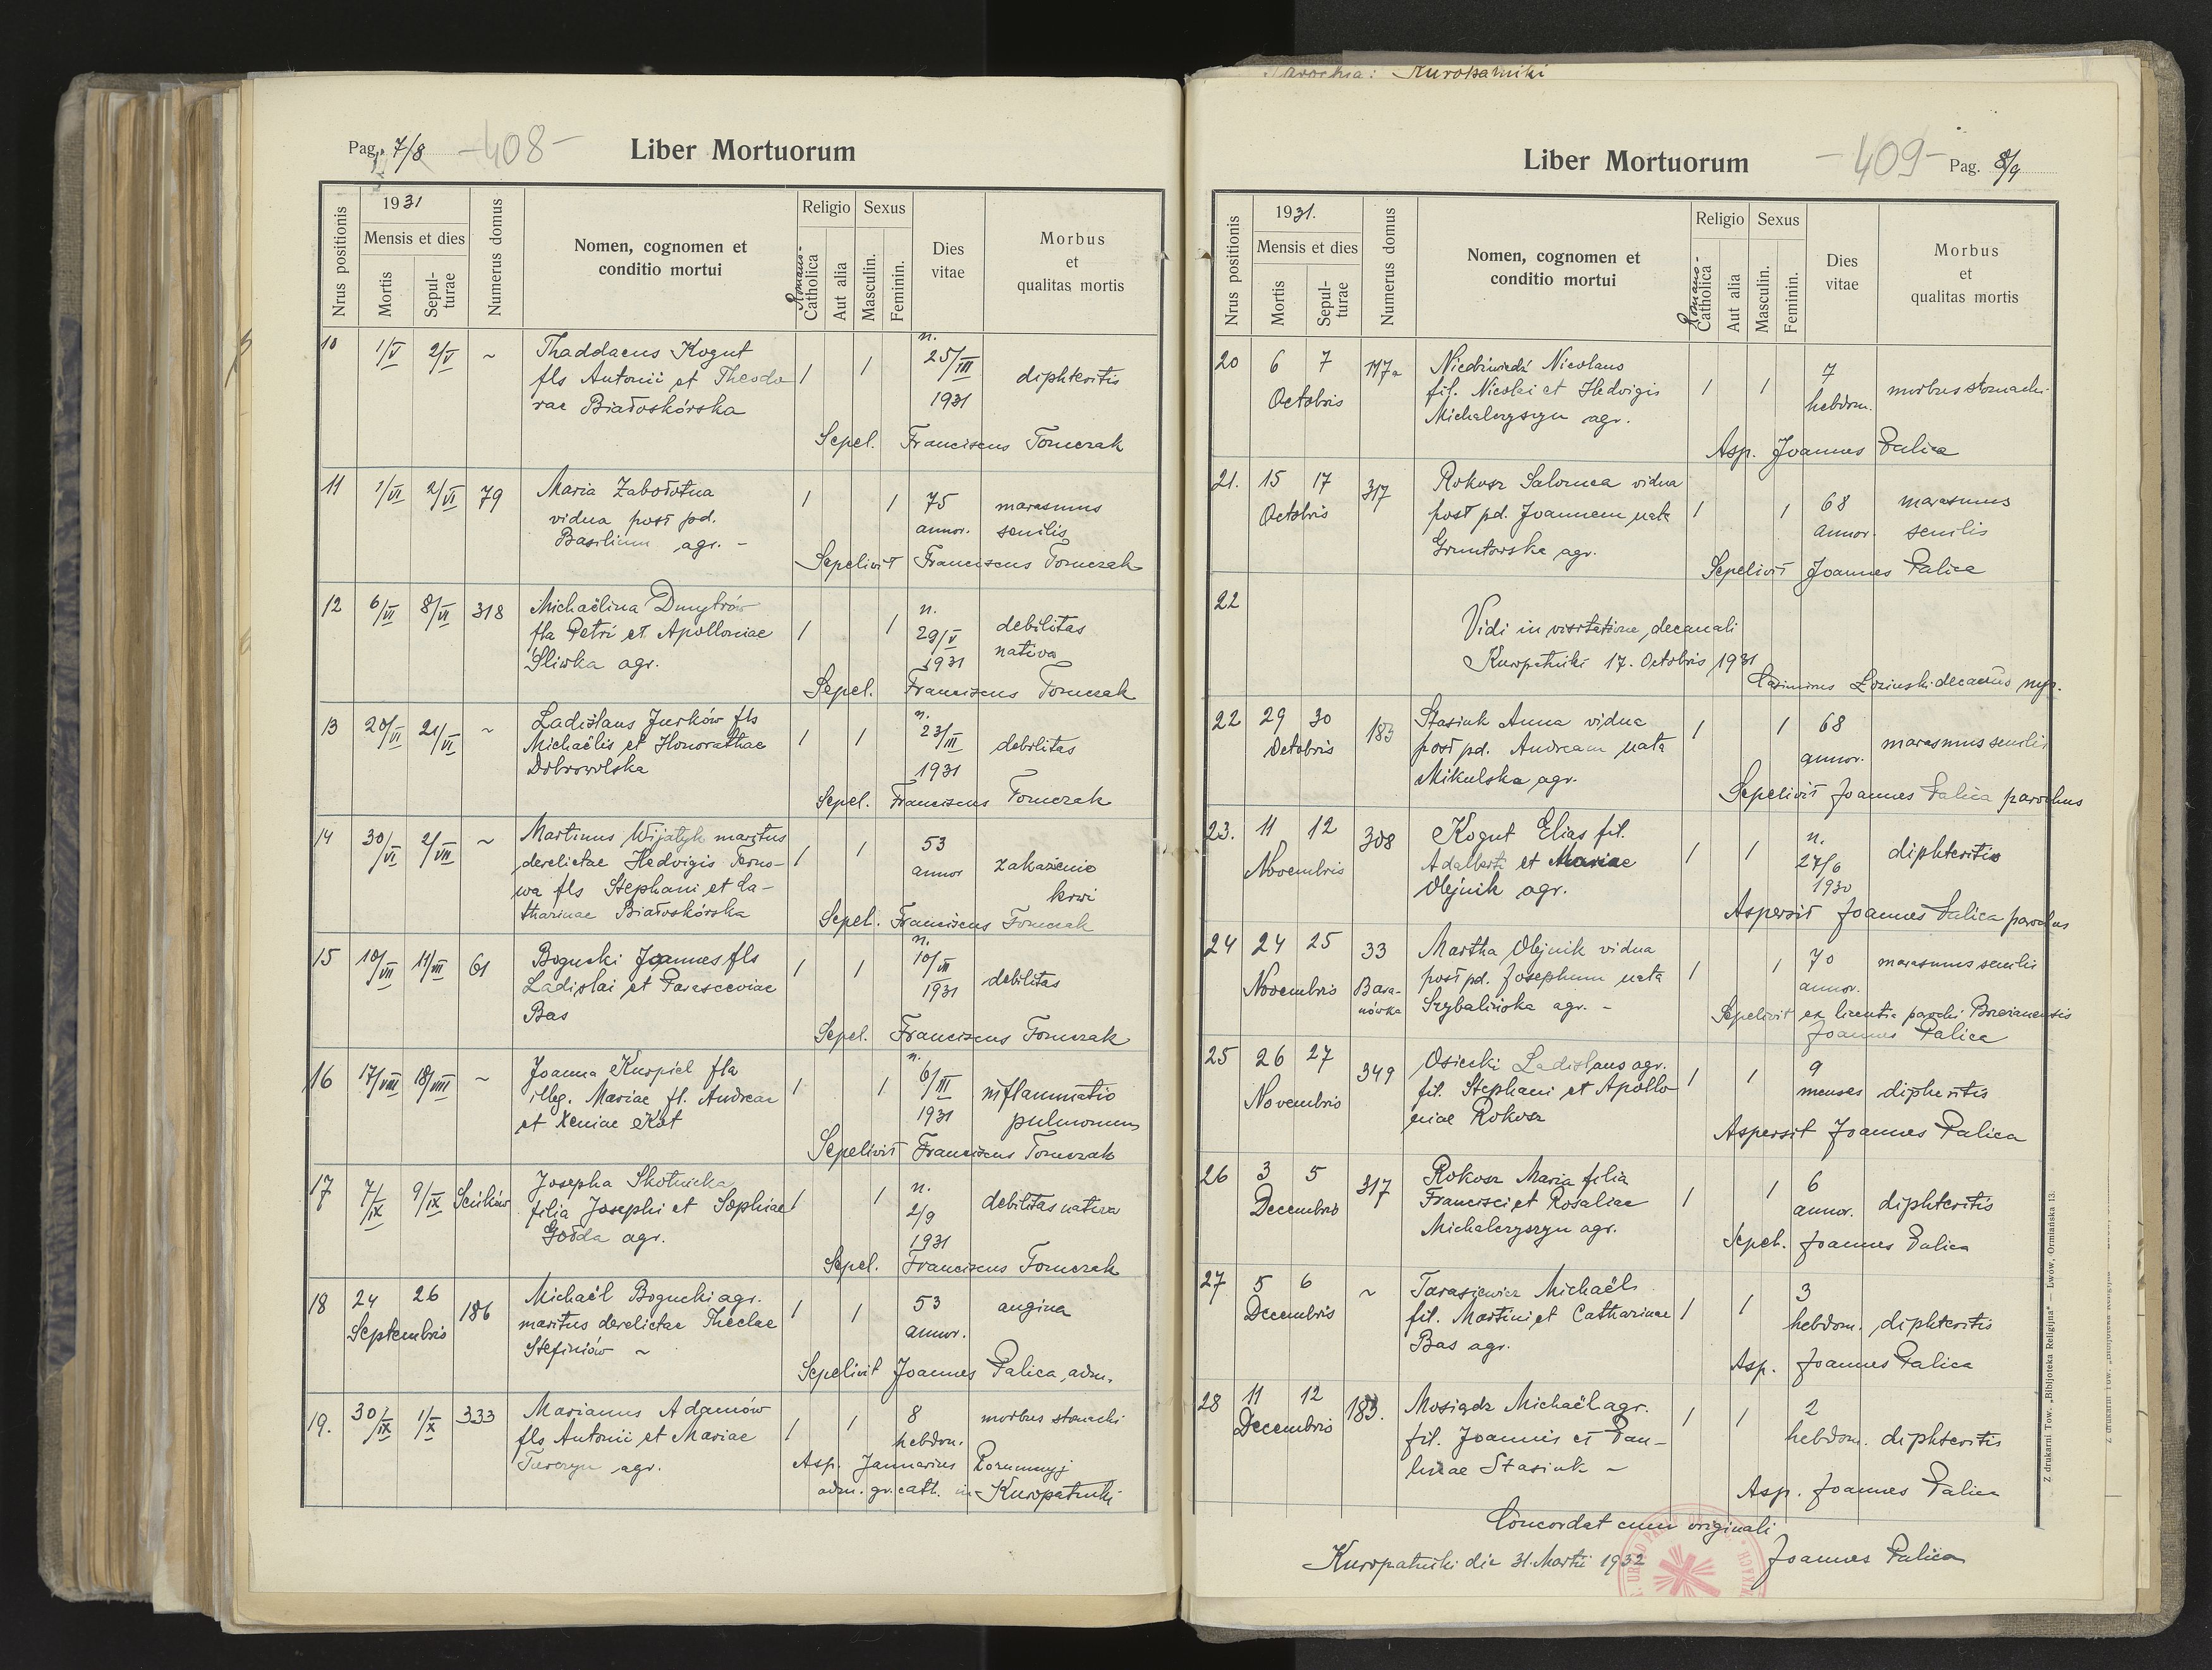 Pag. 7/8
-408-
Liber Mortuorum
Nrus positionis
1931
Mensis et dies
Mortis
Sepulturae
Numerus domus
Nomen, cognomen et
conditio mortui
Religio
Romano-
Catholica
Aut alia
Sexus
Masculin.
Feminin.
Dies
vitae
Morbus
et
qualitas mortis
10 1/V 2/V ~ Thaddaeus Kogut n. 25/III
fls Antonii et Theodo 1 1 1931 diphteritis
rae Białoskórska
Sepel. Franciscus Tomczak
11 1/VI 2/VI 79 Maria Zabołotna 1 1 75 marasmus
vidua post pd. annor. senilis
Basilium agr. -
Sepelivit Franciscus Tomczak
12 6/VI 8/VI 318 Michaëlina Dmytrów n. debilitas
fla Petri et Apolloniae 1 1 29/V nativa
Śliwka agr. 1931
Sepel. Franciscus Tomczak
13 20/VI 21/VI ~ Ladislaus Jurków fls n.
Michaëlis et Honorathae 1 1 23/III debilitas
Dobrowolska 1931
Sepel. Franciscus Tomczak
14 30/VI 2/VII ~ Martinus Wijatyk maritus 53
derelictae Hedvigis 1 1 annor zakażenie
wa fls Stephani et Ca- krwi
tharinae Białoskórska
Sepel. Franciscus Tomczak
15 10/VII 11/VII 61 Bogucki Joannes fls n. 10/VII
Ladislai et Parasceviae 1 1 1931 debilitas
Bas
Sepel. Franciscus Tomczak
16 17/VIII 18/VIII ~ Joanna Kurpiel fla n. 6/III
illeg. Mariae fl. Andreae 1 1 1931 inflammatio
et Xeniae Kot pulmonum
Sepelivit Franciscus Tomczak
17 7/IX 9/IX Ścików Josepha Skotnicka n.
filia Josephi et Sophiae 1 1 2/9 debilitas nativa
Gołda agr. 1931
Sepel. Franciscus Tomczak
18 24 26 186 Michaël Bogucki agr. 1 1 53 angina
Septembris maritus derelictae Theclae annor.
Stefiniów ~
Sepelivit Joannes Palica, adm.
19. 30/IX 1/X 333 Marianus Adamów 8 morbus stomachi
fls Antonii et Mariae 1 1 hebdom.
Turczyn agr. Asp. Januarius Rozumnyj
adm. gr. cath. in Kuropatniki
Parochia: Kuropatniki
Liber Mortuorum
-409-
Pag. 8/9
Nrus positionis
1931.
Mensis et dies
Mortis
Sepulturae
Numerus domus
Nomen, cognomen et
conditio mortui
Religio
Romano-
Catholica
Aut alia
Sexus
Masculin.
Feminin.
Dies
vitae
Morbus
et
qualitas mortis
20 6 7 117a Niedźwiedź Nicolaus 7
Octobris fil. Nicolai et Hedvigis 1 1 hebdom. morbus stomachi
Michalczyszyn agr.
Asp. Joannes Palica
21. 15 17 317 Rokosz Salomea vidua
Octobris post pd. Joannem nata 1 1 68 marasmus
Gruntowska agr. annor. senilis
Sepelivit Joannes Palica
22
Vidi in visitatione decanali
Kuropatniki 17. Octobris 1931
Casimirus Łoziński decanus mp.
22 29 30 183 Stasiuk Anna vidua 1 1 68
Octobris post pd. Andream nata annor. marasmus senilis
Mikulska agr.
Sepelivit Joannes Palica parochus
23. 11 12 308 Kogut Elias fil. n.
Novembris Adalberti et Mariae 1 1 27/6 diphteritis
Olejnik agr. 1930
Aspersit Joannes Palica parochus
24 24 25 33 Martha Olejnik vidua
Novembris Bara- post pd. Josephum nata 1 1 70 marasmus senilis
nówka Szybalińska agr. - annor.
Sepelivit ex licentia parochi Brzezanensis
Joannes Palica
25 26 27 349 Osiecki Ladislaus agr. 9
Novembris fil. Stephani et Apollo- 1 1 menses dipheritis
niae Rokosz
Aspersit Joannes Palica
26 3 5 317 Rokosz Maria filia 6
Decembris Francisci et Rosaliae 1 1 annor. diphteritis
Michalczyszyn agr.
Sepel. Joannes Palica
27 5 6 ~ Tarasiewicz Michaël 3
Decembris fil. Martini et Catharinae 1 1 hebdom. diphteritis
Bas agr.
Asp. Joannes Palica
28 11 12 183. Mosiądz Michaël agr. 1 1 2
Decembris fil. Joannis et Pau- hebdom. diphteritis
linae Stasiuk ~
Asp. Joannes Palica
Concordat cum originali
Kuropatniki die 31. Martii 1932 Joannes Palica
Z drukarni Tow. „Bibljoteka Religijna" — Lwów, Ormiańska 13.